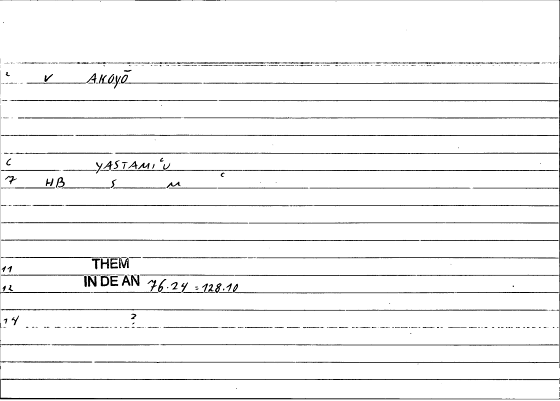 v AKOYŌ
6 YASTAMI'U
7 HB S M c
11 THEM
12 IN DE AN 76.24 = 128.10
14 ?